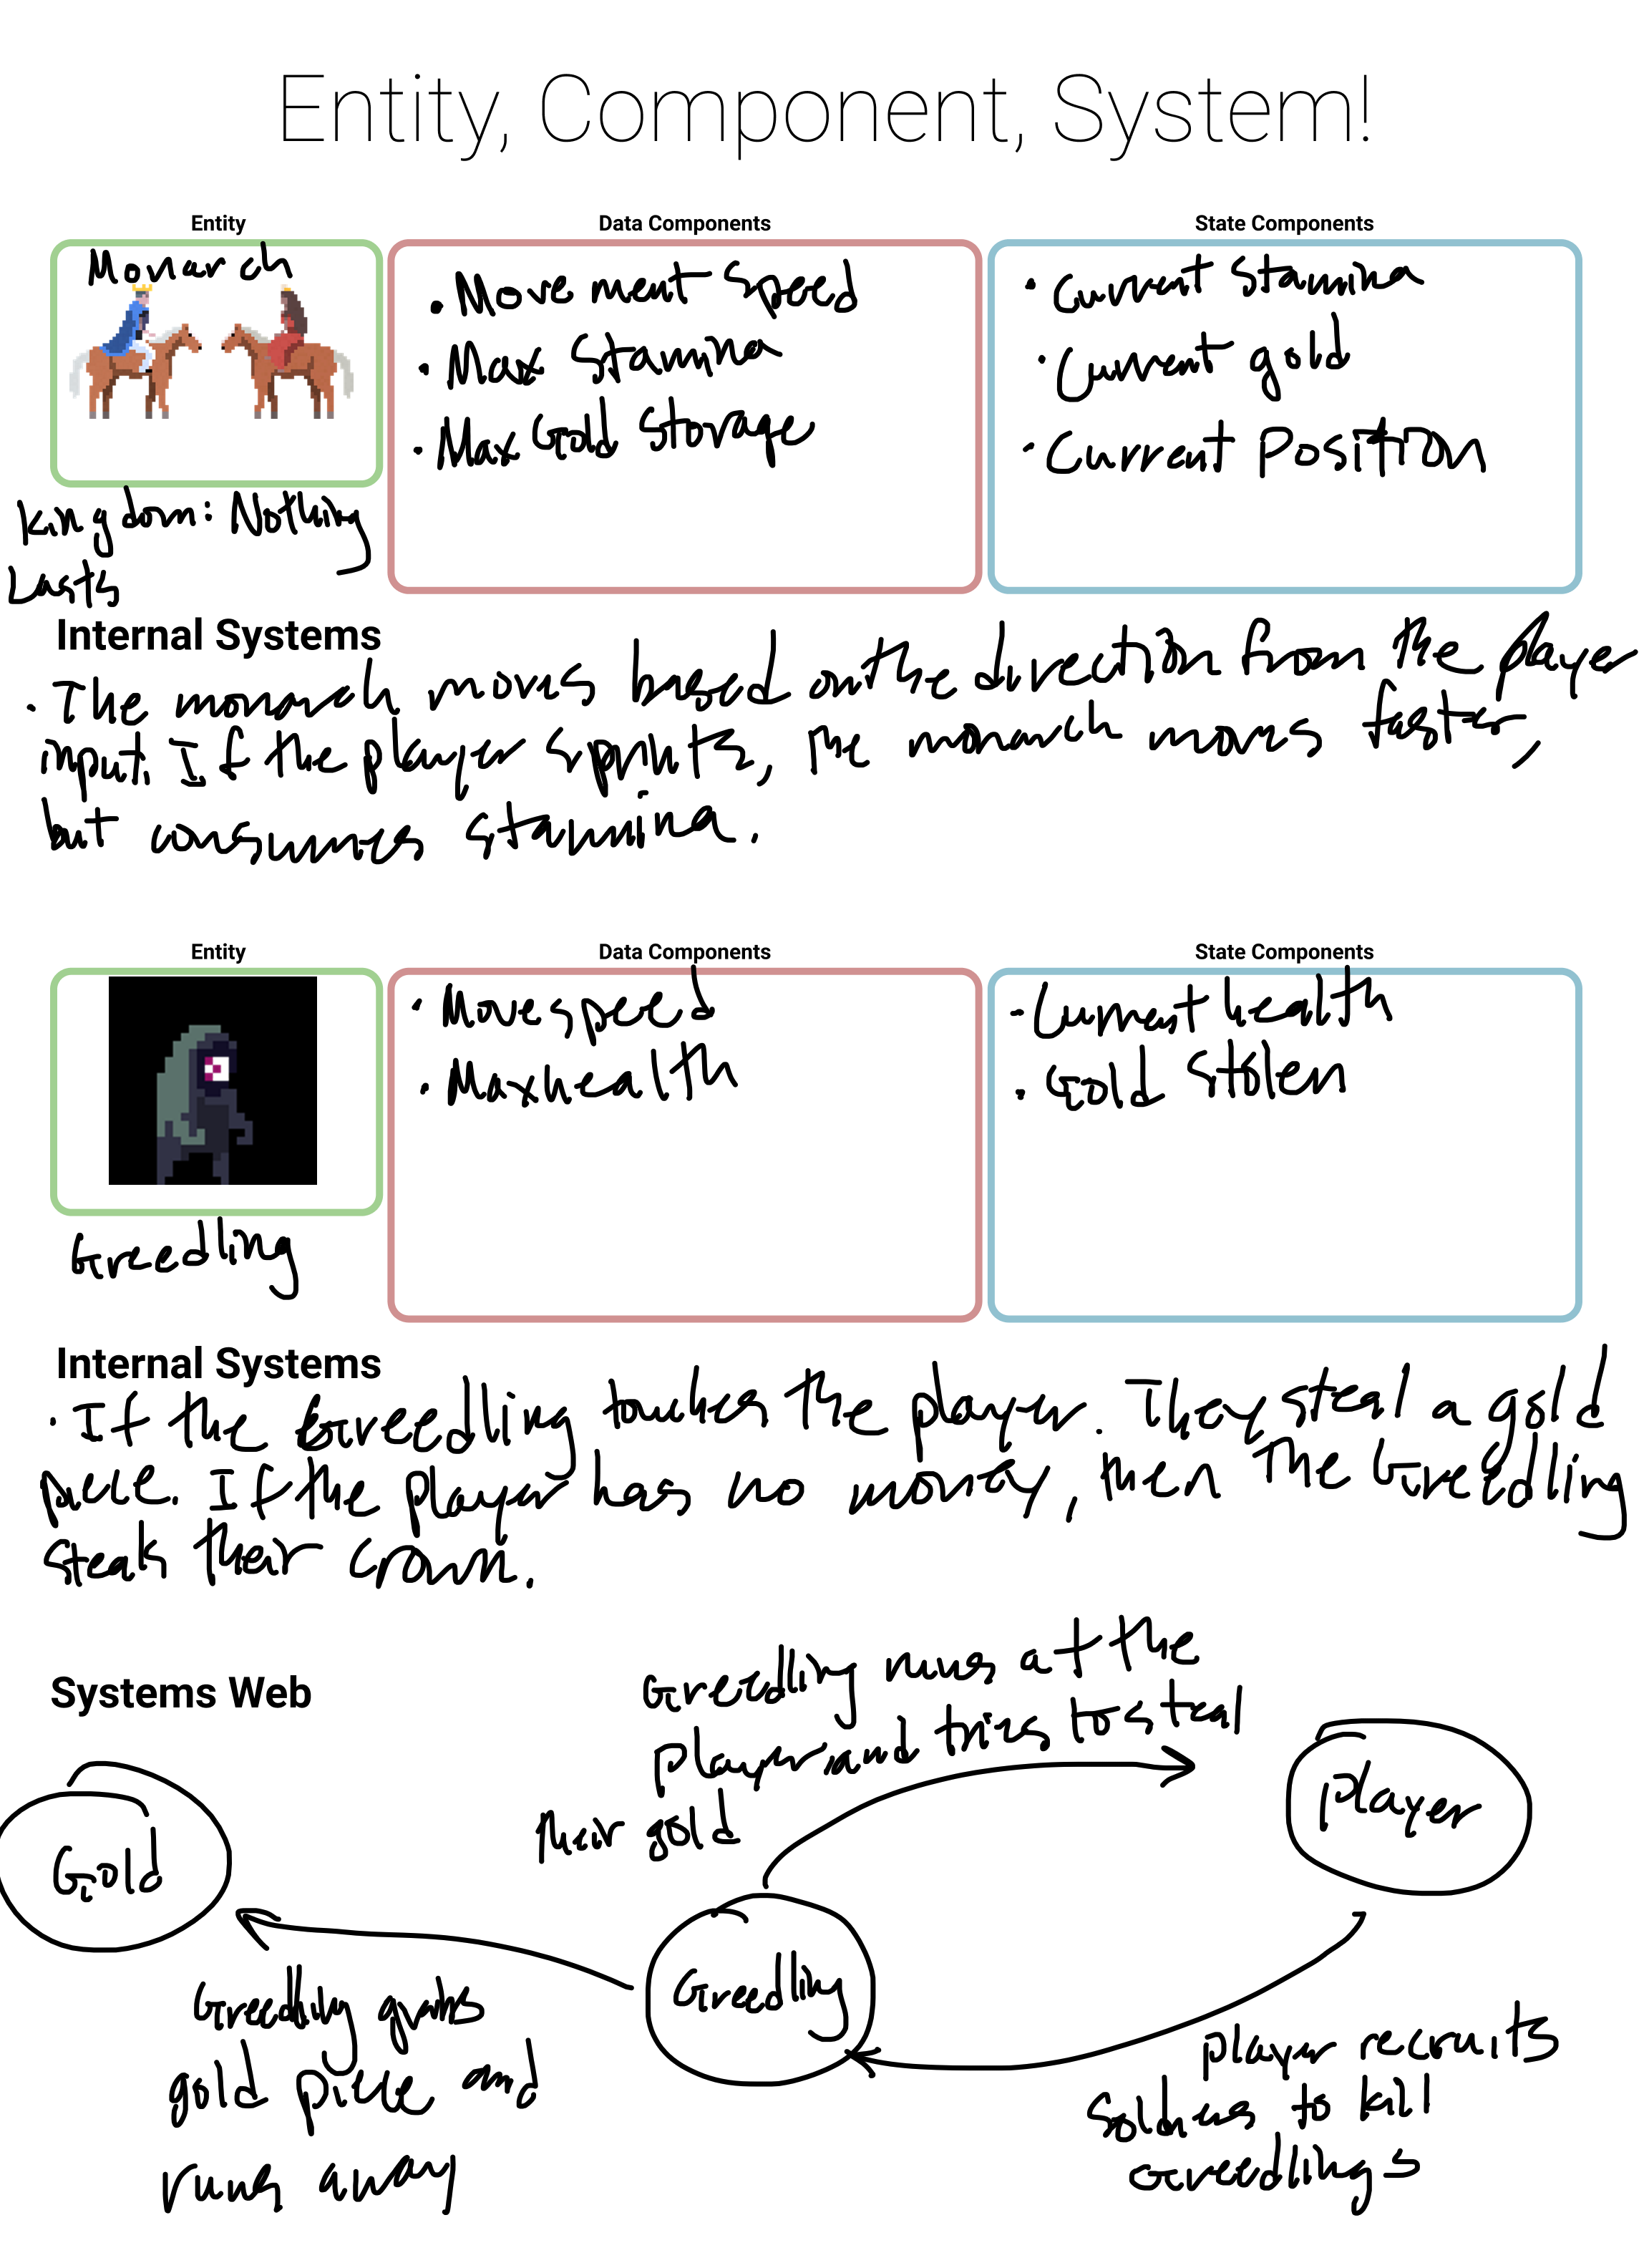 Entity, Component, System!
Entity
Data Components
State Components
Monarch
• Movement Speed
• Max Stamina
• Max Gold Storage
• Current Stamina
• Current gold
• Current Position
Kingdom: Nothing
Lasts
Internal Systems
• The monarch moves based on the direction from the player
input. If the player sprints, the monarch moves faster,
but consumes stamina.
Entity
Data Components
State Components
• Move speed
• Max health
• Current health
• Gold Stolen
Greedling
Internal Systems
• If the Greedling touches the player. They steal a gold
piece. If the player has no money, then the Greedling
steals their crown.
Systems Web
Greedling runs at the
player and tries to steal
their gold
Player
Gold
Greedling
Greedling grabs
gold piece and
runs away
player recruits
soldiers to kill
Greedlings